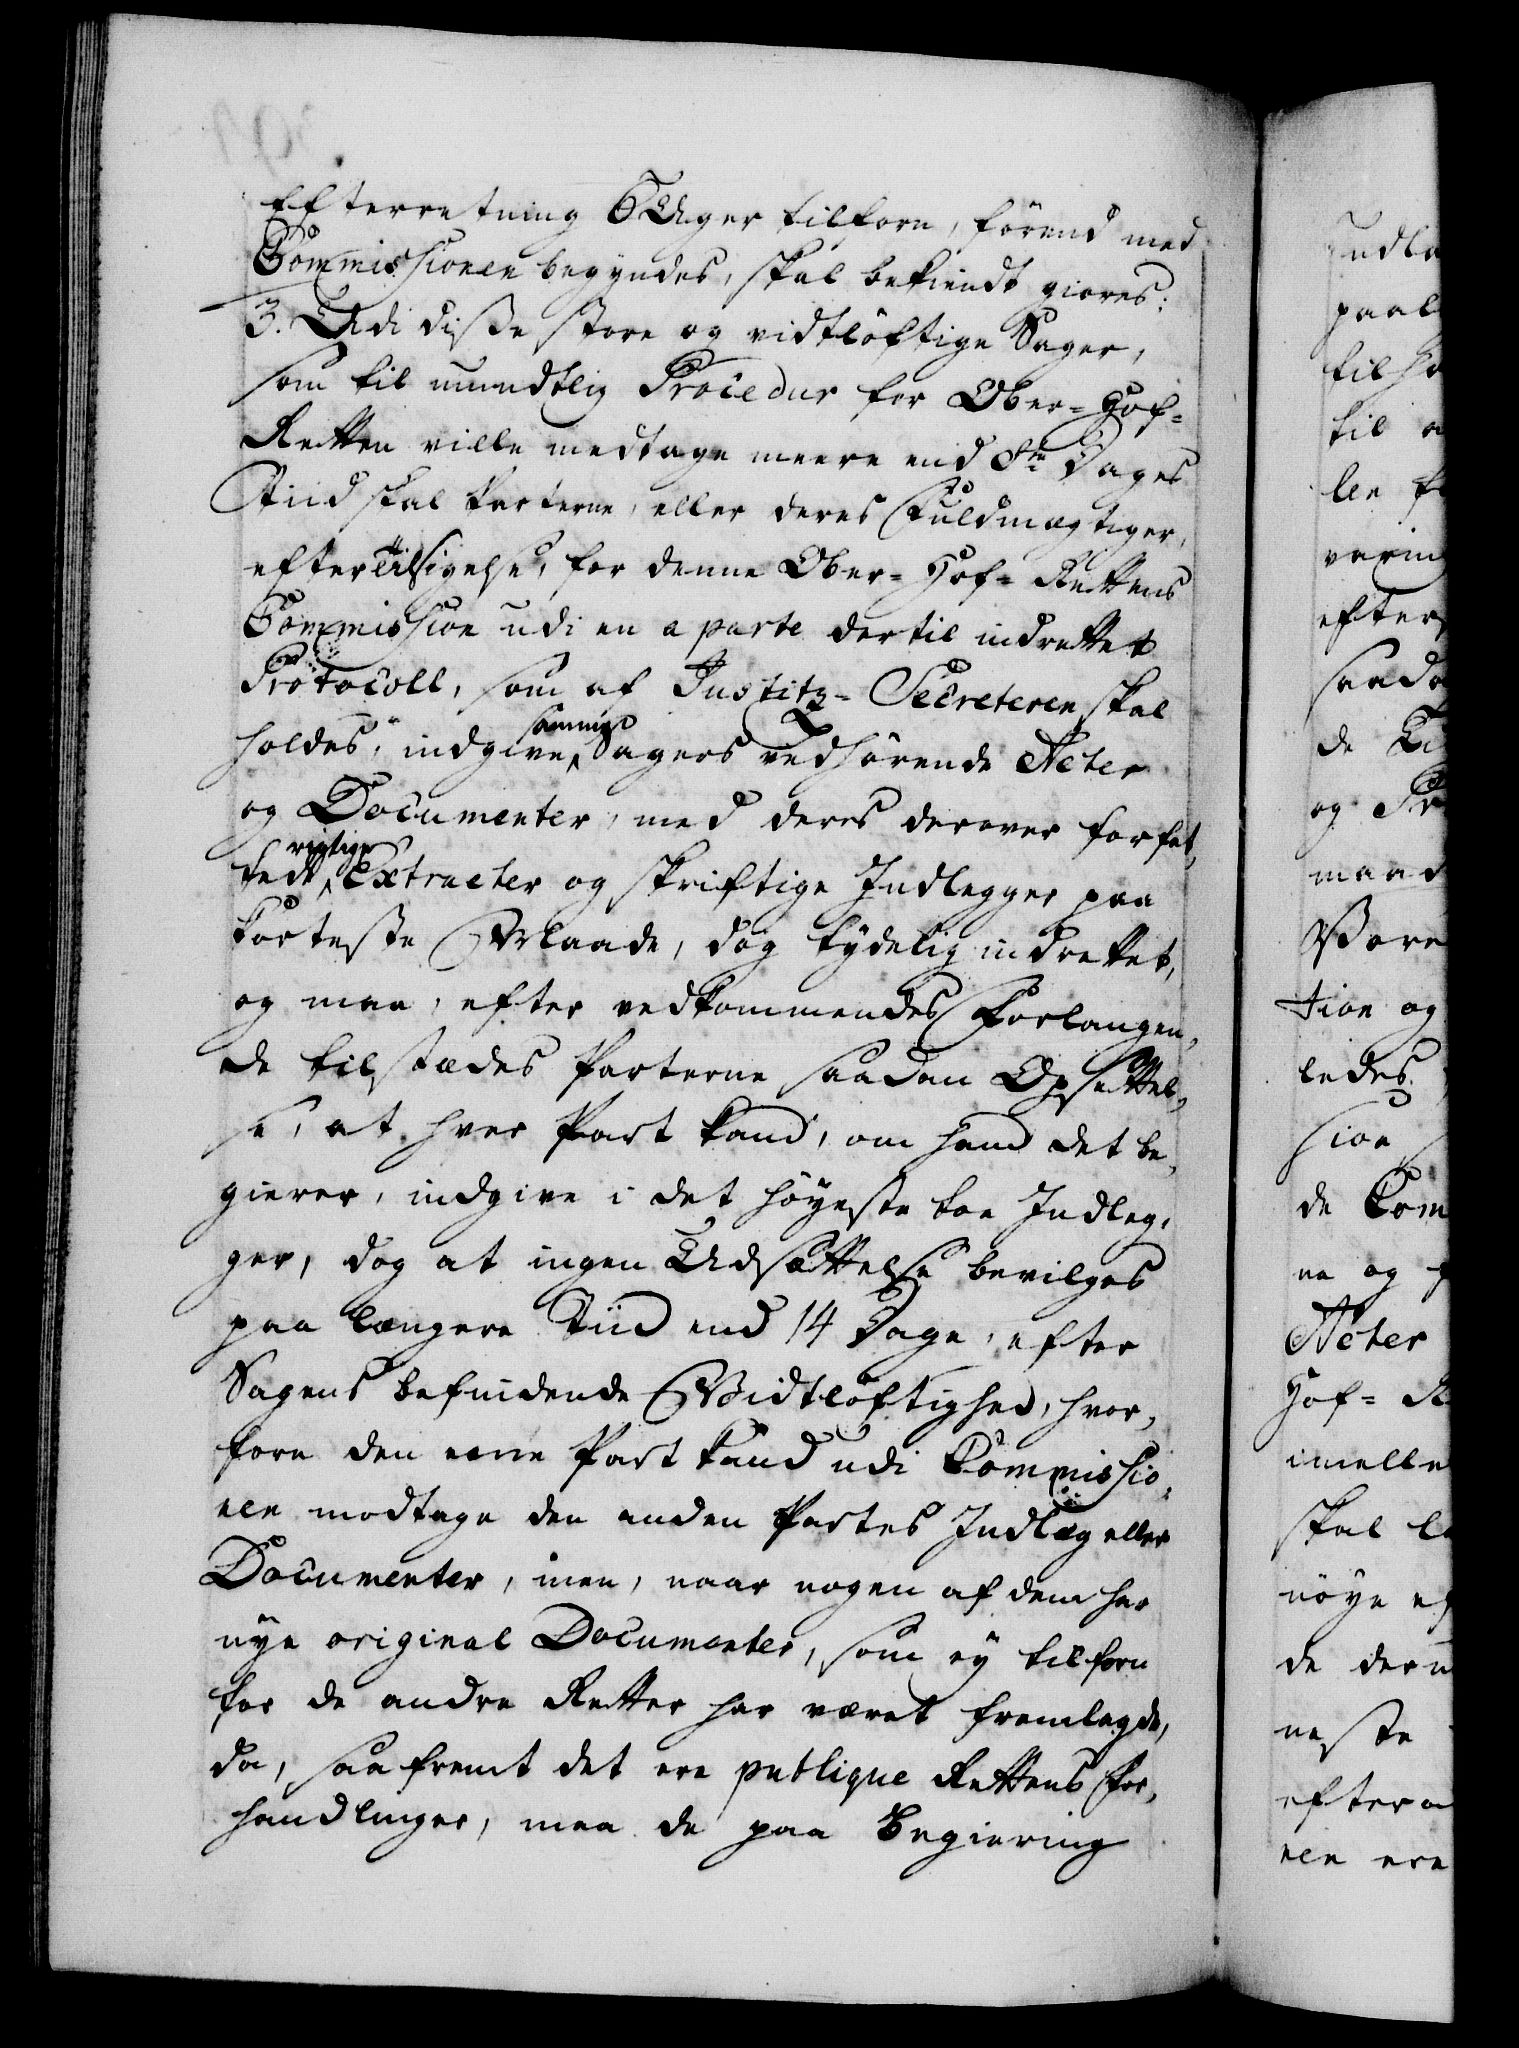 Efterretning 6 Uger tilforn, förend med
Commissionen begyndes, skal bekiendt giöres;
3. Udi disse store og vidtlöftige Sager,
som til mundtlig Procedur for Ober-Hof-
Retten ville medtage meere end 8te Dages
Tiid skal Parterne, eller deres Fuldmægtiger,
efter Tilsigelse, for denne Ober-Hof-Rettens
Commission udi en a parte dertil indrettet
Protocoll, som af Justitz-Secreteren skal
holdes, indgive samme Sagers vedhörende Acter
og Documenter, med deres derover forfat,
tede rigtige Extracter og skriftige Indlegger paa
korteste Maade, dog tydelig indrettet,
og maa, efter vedkommendes Forlangen,
de tilstædes Parterne saadan Opsættel,
se, at hver Part kand, om hand det be,
gierer, indgive i det höyeste toe Indleg,
ger, dog at ingen Udsættelse bevilges
paa længere Tiid end 14 Dage, efter
Sagens befindende Vidtlöftighed, hvor,
fore den eene Part kand udi Commissio,
nen modtage den anden Partes Indlæg eller
Documenter, men, naar nogen af dem har
nye original Documenter, som ey tilforn
for de andre Retter har været fremlagde,
da, saafremt det ere publique Rettens For,
handlinger, maa de paa Begiering